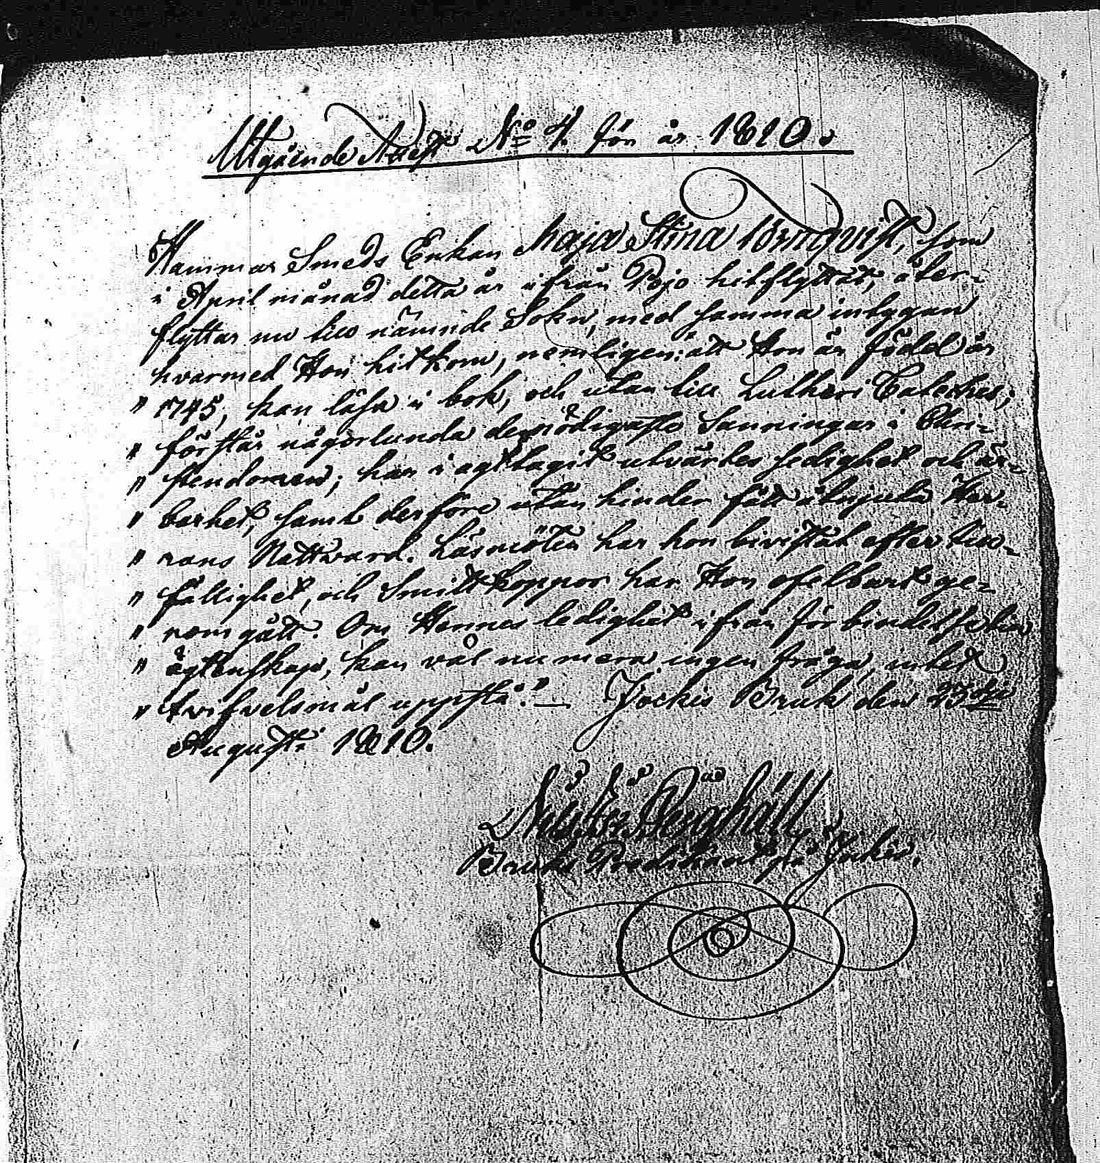 Utgående Attest No 4 för år 1810.
Hammar Smeds Enkan Maja Stina Örnqvist, som
i April månad detta år ifrån Pojo hitflyttat, åter-
flyttar nu till nämnde Sokn, med samma intygan
hvarmed Hon hitkom, nemligen: att Hon är född år
" 1745, kan läsa i bok, och utan till Lutheri Cateches;
" förstår någorlunda de nödigaste Sanningar i Chri-
" stendomen; har i agttagit utvärtes sedighet och är-
" barhet, samt derföre utan hinder fått åtnjuta Her-
" rans Nattvard. Läsmöten har hon bivistat efter till-
" fällighet, och Smittkoppor har Hon ofelbart ge-
" nomgått. Om Hennes ledighet ifrån förbindelse
" ägtenskap, kan väl nu mera ingen fråga, intet
" tvifvelsmål uppstå." — Jockis Bruk den 23
Augusti 1810.
Berghäll
Bruks Predikant på Jockis.